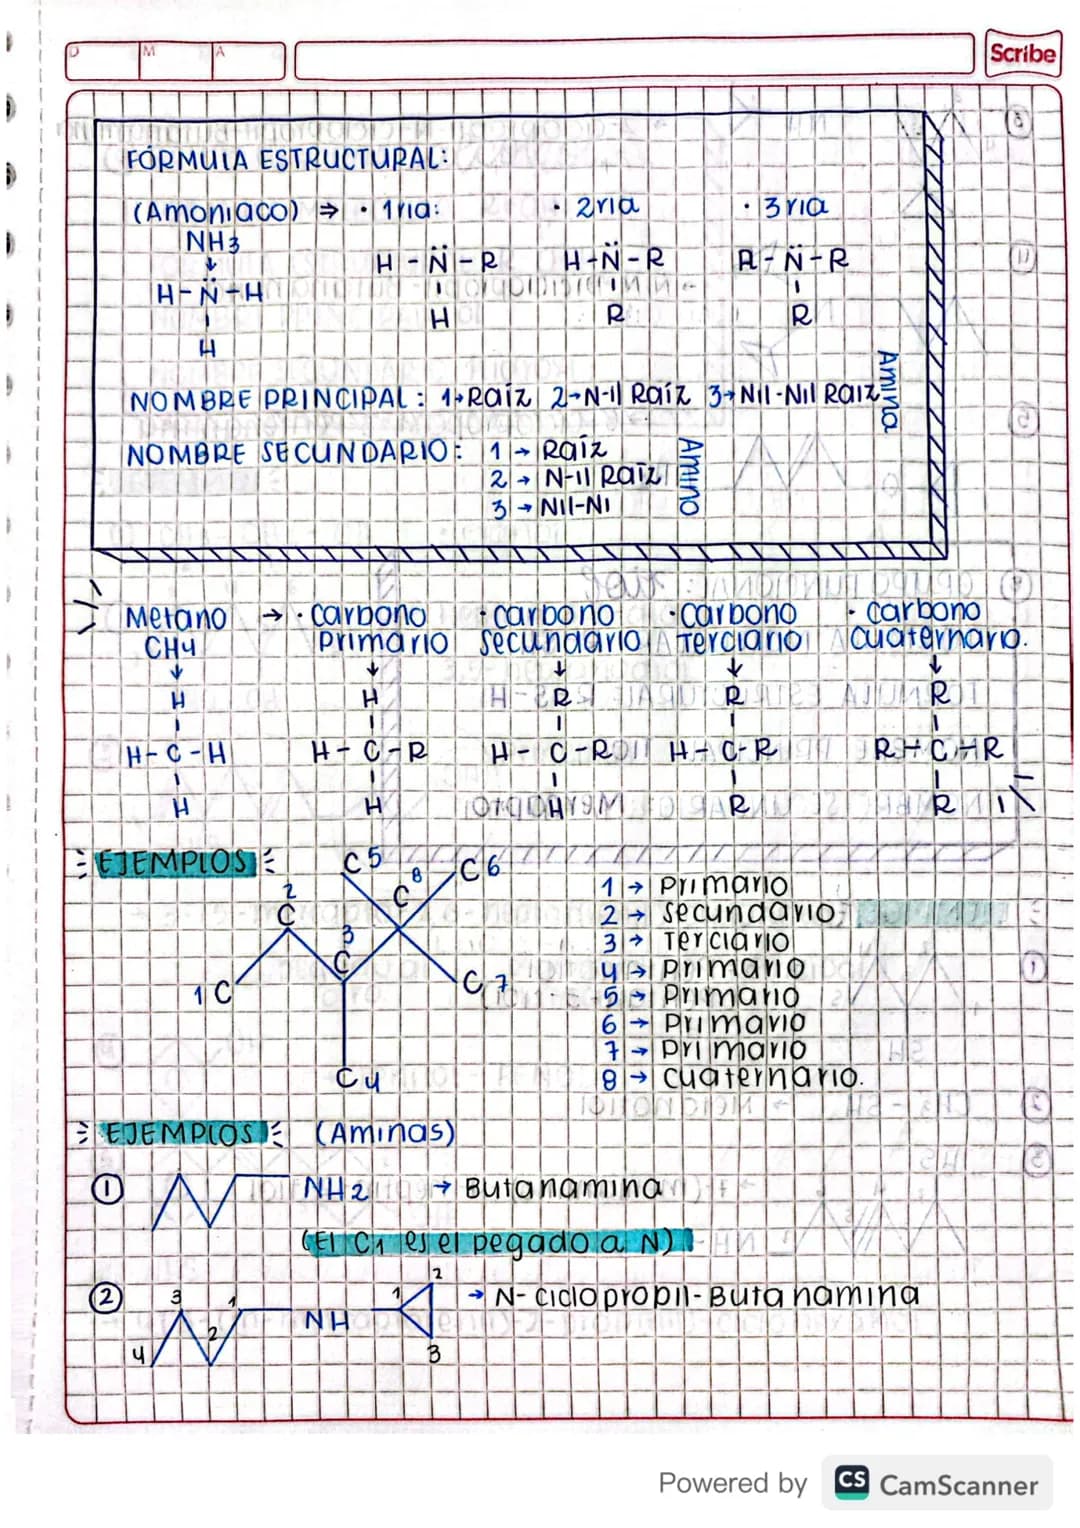 D M A
Scribe
FÓRMULA ESTRUCTURAL:
(Amoniaco) ⇒ · 1ria: · 2ria · 3ria
NH3
↓
H - N̈ - R H-N̈-R R-N̈-R
H-N̈-H
H R R
H
NOMBRE PRINCIPAL: 1→Raíz 2→N-il Raíz 3→Nil-Nil Raiz Amina
NOMBRE SECUNDARIO: 1 → Raíz
2 → N-il Raíz Amino
3 → Nil-Ni
Metano → · carbono · carbono · carbono · carbono
CH4 primario secundario Terciario cuaternario.
↓ ↓ ↓ ↓ ↓
H H R R R
H - C - H H - C - R H - C - R H - C - R R - C - R
H H H R R
EJEMPLOS
C 5 8 C C 6
2 C
3 C
1 C
C 7
C 4
1 → Primario
2 → secundario
3 → Terciario
4 → Primario
5 → Primario
6 → Primario
7 → Primario
8 → cuaternario.
EJEMPLOS (Aminas)
① NH2 → Butanamina
(El C1 es el pegado a N)
② 3 1 NH 1 2 → N- ciclopropil-Butanamina
4 2 3
Powered by CS CamScanner